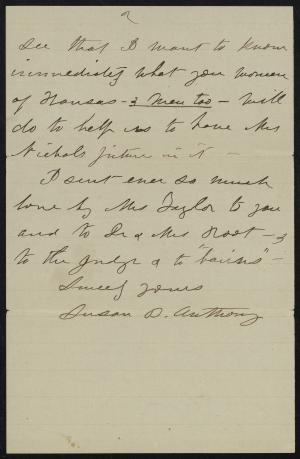 2
see that I want to know
immediately what you women
of Kansas - & men too - will
do to help us to have Mrs
Nichols picture in it -
I sent ever so much
love by Mrs Taylor to you
and to Dr & Mrs Root - &
to the Judge & to "bairns" -
Sincely yours
Susan B. Anthony